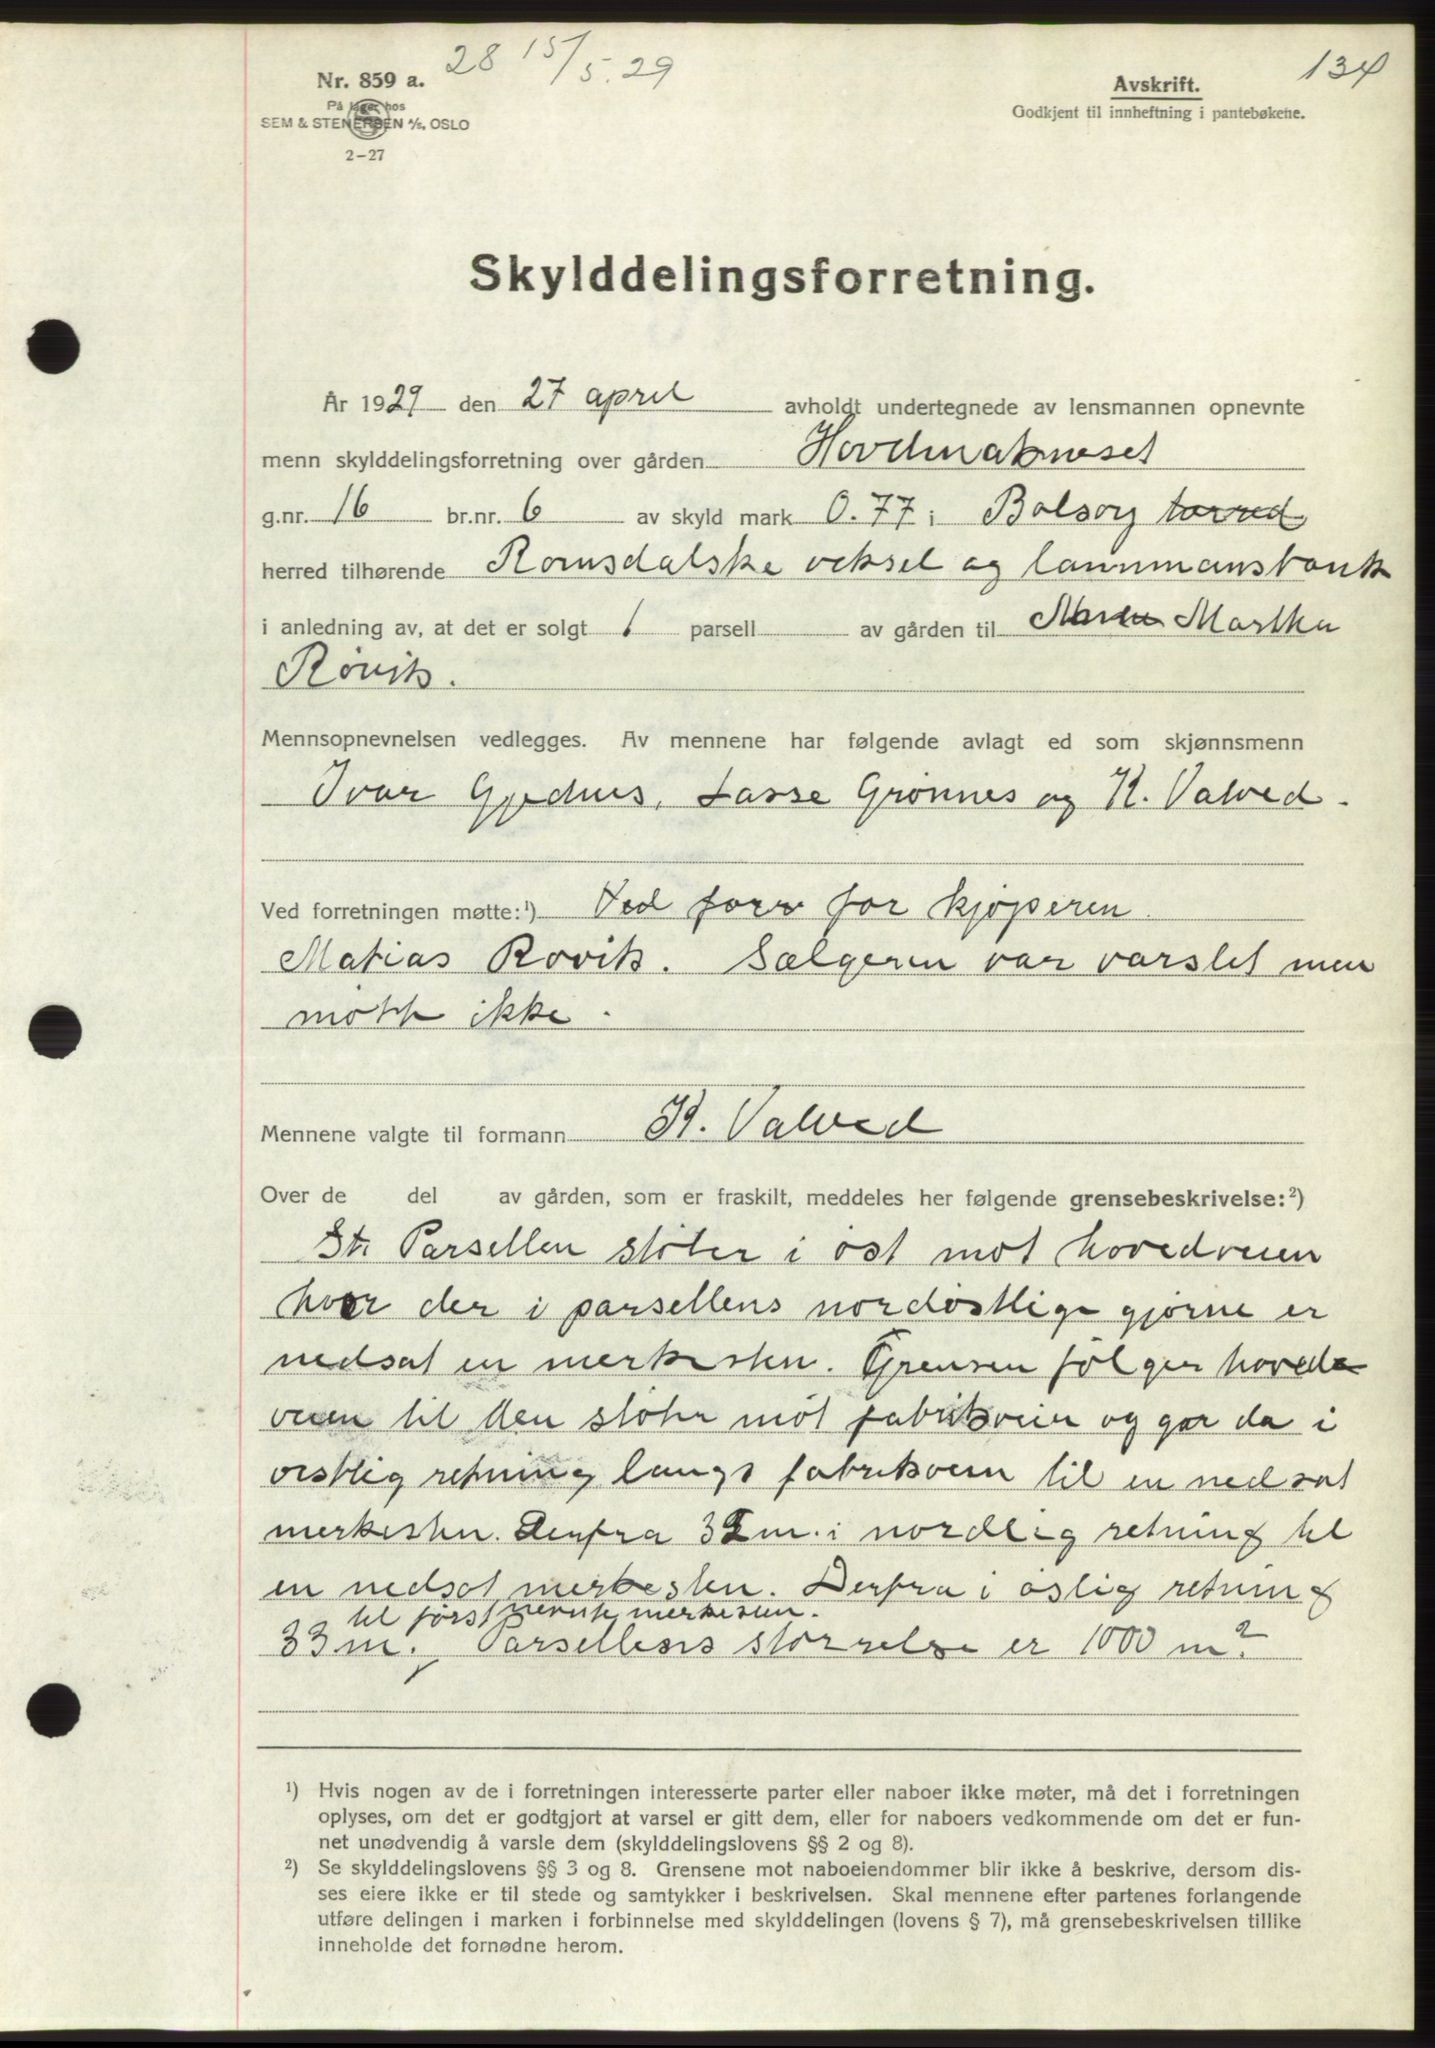 28 15/5.29
134
Nr. 859 a.
På lager hos
SEM & STENERSEN A/S, OSLO
2-27
Avskrift.
Godkjent til innheftning i pantebøkene.
Skylddelingsforretning.
År 1929 den 27 april avholdt undertegnede av lensmannen opnevnte
menn skylddelingsforretning over gården
g.nr. 16 br.nr. 6 av skyld mark 0.77 i Bolsøy
herred tilhørende Romsdalske veksel og
i anledning av, at det er solgt 1 parsell av gården til Martha
Røvik.
Mennsopnevnelsen vedlegges. Av mennene har følgende avlagt ed som skjønnsmenn
Ivar Gjedhus, Lasse Grønnes og K. Valved.
Ved forretningen møtte:¹) Ved forr for kjøperen
Matias Rovik. Sælgeren var varslet men
møtte ikke.
Mennene valgte til formann K. Valved
Over de del av gården, som er fraskilt, meddeles her følgende grensebeskrivelse:²)
Parsellen støter i øst mot hovedveien
hvor der i parsellens nordøstlige gjørne er
nedsat en merkesten. Grensen følger hovede
veien til den støter mot fabrikveien og gar da i
vestlig retning langs fabrikveien til en nedsat
merkesten. Derfra 32 m. i nordlig retning til
en nedsat merkesten. Derfra i øslig retning
til først nevnte merkesten.
33 m. Parsellens størrelse er 1000 m².
¹) Hvis nogen av de i forretningen interesserte parter eller naboer ikke møter, må det i forretningen
oplyses, om det er godtgjort at varsel er gitt dem, eller for naboers vedkommende om det er fun-
net unødvendig å varsle dem (skylddelingslovens §§ 2 og 8).
²) Se skylddelingslovens §§ 3 og 8. Grensene mot naboeiendommer blir ikke å beskrive, dersom dis-
ses eiere ikke er til stede og samtykker i beskrivelsen. Skal mennene efter partenes forlangende
utføre delingen i marken i forbinnelse med skylddelingen (lovens § 7), må grensebeskrivelsen tillike
inneholde det fornødne herom.